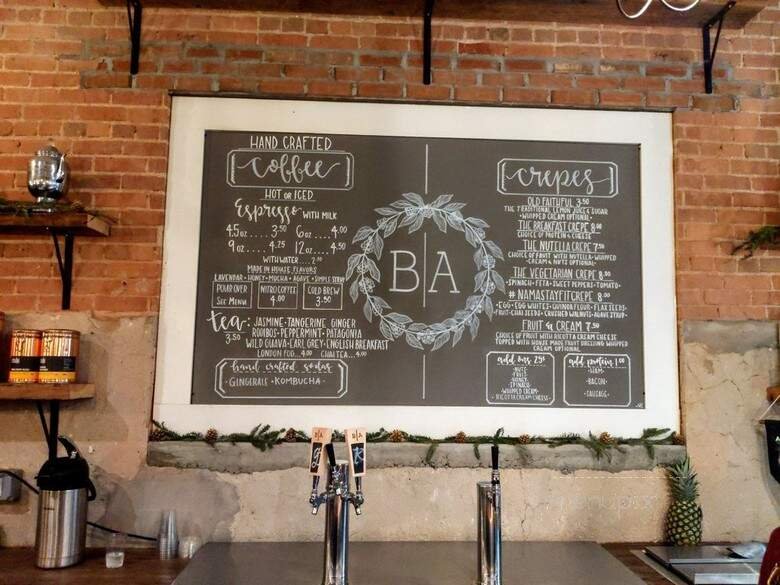 HAND CRAFTED
coffee
HOT OR ICED
Espresso WITH MILK
4.5oz.... 3.50 6oz.... 4.00
9oz.... 4.25 12oz.... 4.50
WITH WATER...2.00
MADE IN HOUSE FLAVORS
LAVENDAR • HONEY • MOCHA • AGAVE • SIMPLE SYRUP
POUR OVER
SEE MENU
NITRO COFFEE
4.00
COLD BREW
3.50
tea: JASMINE • TANGERINE GINGER
3.50 ROOIBOS • PEPPERMINT • PATAGONIA
WILD GUAVA • EARL GREY • ENGLISH BREAKFAST
LONDON FOG...4.00 CHAI TEA...4.00
hand crafted sodas
• GINGERALE • KOMBUCHA •
BA
crepes
OLD FAITHFUL 3.50
THE TRADITIONAL LEMON JUICE & SUGAR
• WHIPPED CREAM OPTIONAL •
THE BREAKFAST CREPE 8.00
CHOICE OF PROTEIN & CHEESE
THE NUTELLA CREPE 7.50
CHOICE OF FRUIT WITH NUTELLA • WHIPPED
CREAM & NUTS OPTIONAL •
THE VEGETARIAN CREPE 8.00
• SPINACH • FETA • SWEET PEPPERS • TOMATO
# NAMASTAYFITCREPE 8.00
• EGG • EGG WHITES • QUINOA FLOUR • FLAX SEEDS •
FRUIT • CHIA SEEDS • CRUSHED WALNUTS • AGAVE SYRUP •
FRUIT & CREAM 7.50
CHOICE OF FRUIT WITH RICOTTA CREAM CHEESE
TOPPED WITH HOUSE MADE FRUIT DRIZZLING WHIPPED
CREAM OPTIONAL
add ons 75¢
• NUTS •
• FRUIT •
• HONEY •
• SPINACH •
• WHIPPED CREAM •
• RICOTTA CREAM CHEESE •
add protein 1.00
• HAM •
• BACON •
• SAUSAGE •
B|A
B|A